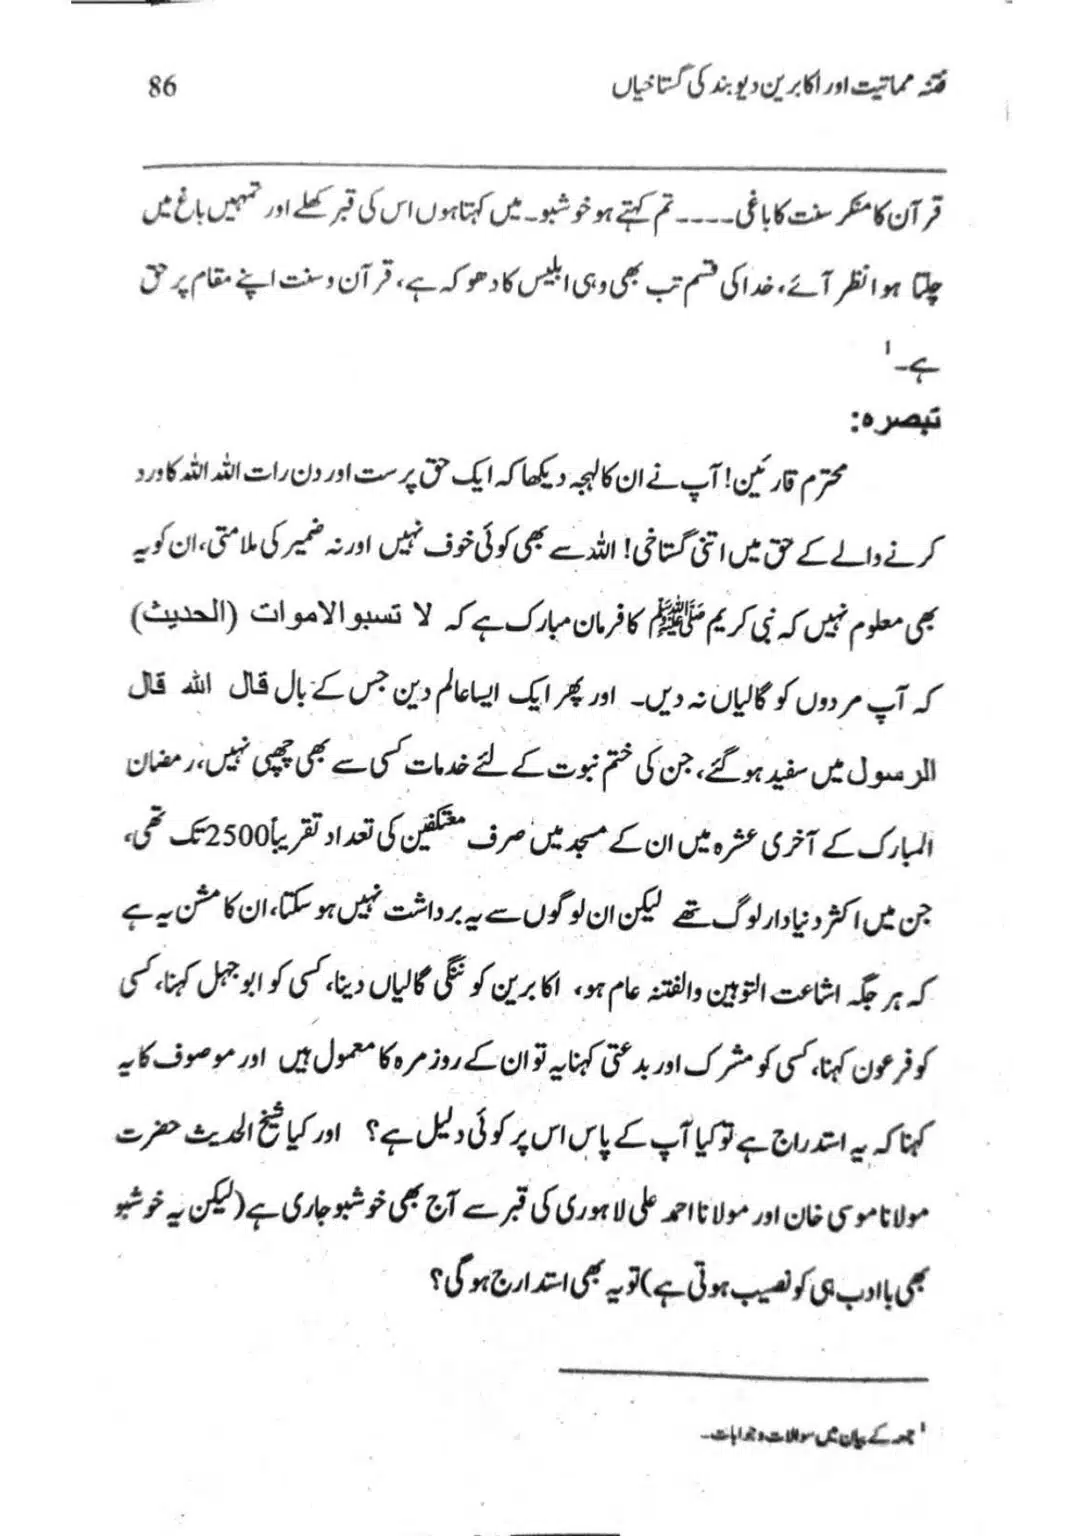 فتنہ مماتیت اور اکابرین دیوبند کی گستاخیاں 86
قرآن کا منکر سنت کا باغی۔۔۔۔ تم کہتے ہو خوشبو۔ میں کہتا ہوں اس کی قبر کھلے اور تمہیں باغ میں
چلتا ہوا نظر آئے، خدا کی قسم تب بھی وہی ابلیس کا دھوکہ ہے، قرآن و سنت اپنے مقام پر حق
ہے۔1
تبصرہ:
محترم قارئین! آپ نے ان کا لہجہ دیکھا کہ ایک حق پرست اور دن رات اللہ اللہ کا ورد
کرنے والے کے حق میں اتنی گستاخی! اللہ سے بھی کوئی خوف نہیں اور نہ ضمیر کی ملامتی، ان کو یہ
بھی معلوم نہیں کہ نبی کریم ﷺ کا فرمان مبارک ہے کہ لا تسبوالاموات (الحدیث)
کہ آپ مردوں کو گالیاں نہ دیں۔ اور پھر ایک ایسا عالم دین جس کے بال قال اللہ قال
الرسول میں سفید ہو گئے، جن کی ختم نبوت کے لئے خدمات کسی سے بھی چھپی نہیں، رمضان
المبارک کے آخری عشرہ میں ان کے مسجد میں صرف معتکفین کی تعداد تقریباً 2500 تک تھی،
جن میں اکثر دنیا دار لوگ تھے لیکن ان لوگوں سے یہ برداشت نہیں ہو سکتا، ان کا مشن یہ ہے
کہ ہر جگہ اشاعت التوہین والفتنہ عام ہو، اکابرین کو ننگی گالیاں دینا، کسی کو ابو جہل کہنا، کسی
کو فرعون کہنا، کسی کو مشرک اور بدعتی کہنا یہ تو ان کے روز مرہ کا معمول ہیں اور موصوف کا یہ
کہنا کہ یہ استدراج ہے تو کیا آپ کے پاس اس پر کوئی دلیل ہے؟ اور کیا شیخ الحدیث حضرت
مولانا موسی خان اور مولانا احمد علی لاہوری کی قبر سے آج بھی خوشبو جاری ہے (لیکن یہ خوشبو
بھی باادب ہی کو نصیب ہوتی ہے) تو یہ بھی استدارج ہو گی؟
1 جمعہ کے بیان میں سوالات و جوابات۔